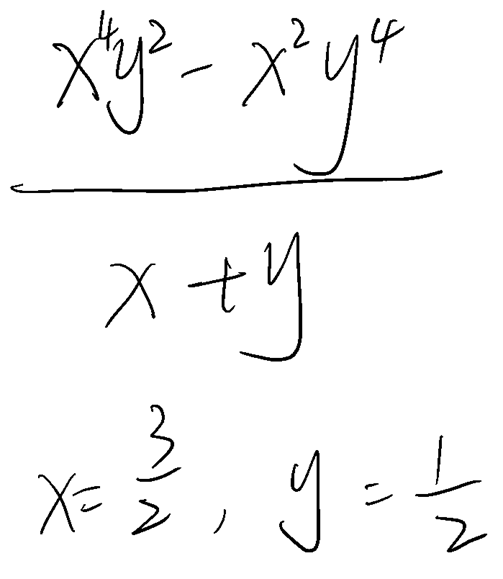 x⁴y² - x²y⁴
x + y
x = 3/2, y = 1/2